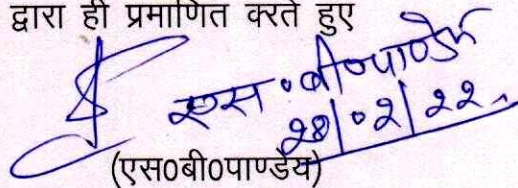 द्वारा ही प्रमाणित करते हुए
एस०बी०पाण्डेय
28/02/22
(एस0बी0पाण्डेय)